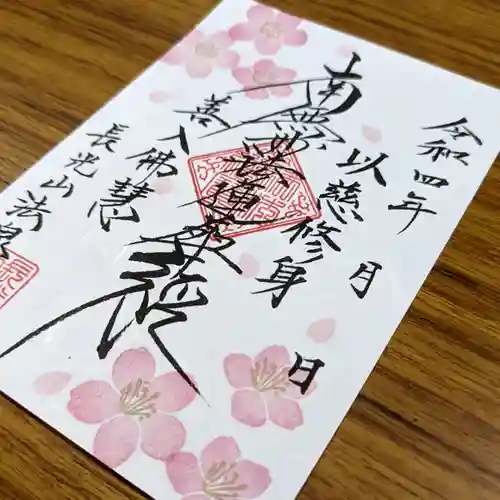 令和四年 月 日
以慈修身
南無妙法蓮華経
善入佛慧
長光山法泉